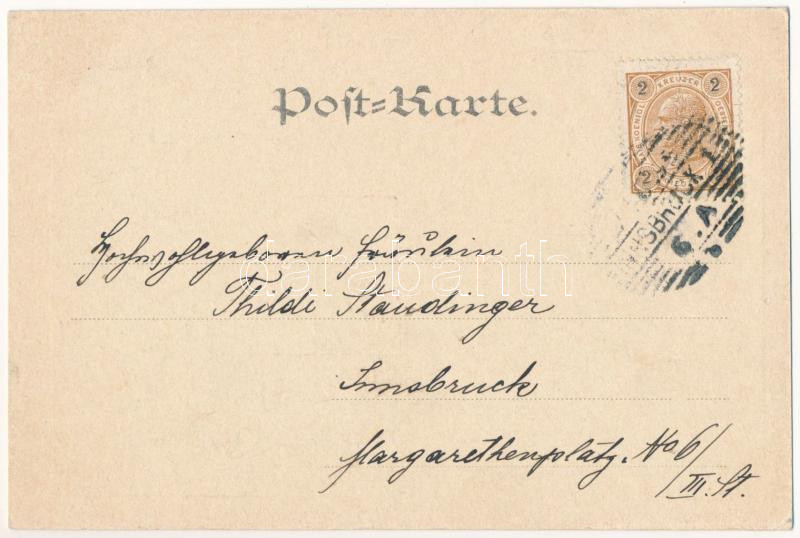 Post=Karte.
2 KREUZER 2
2
INSBRUCK 1
6.A
Hochwohlgeboren Fräulein
Thildi Staudinger
Innsbruck
Margarethenplatz. No 6/
III. St.
darabanth